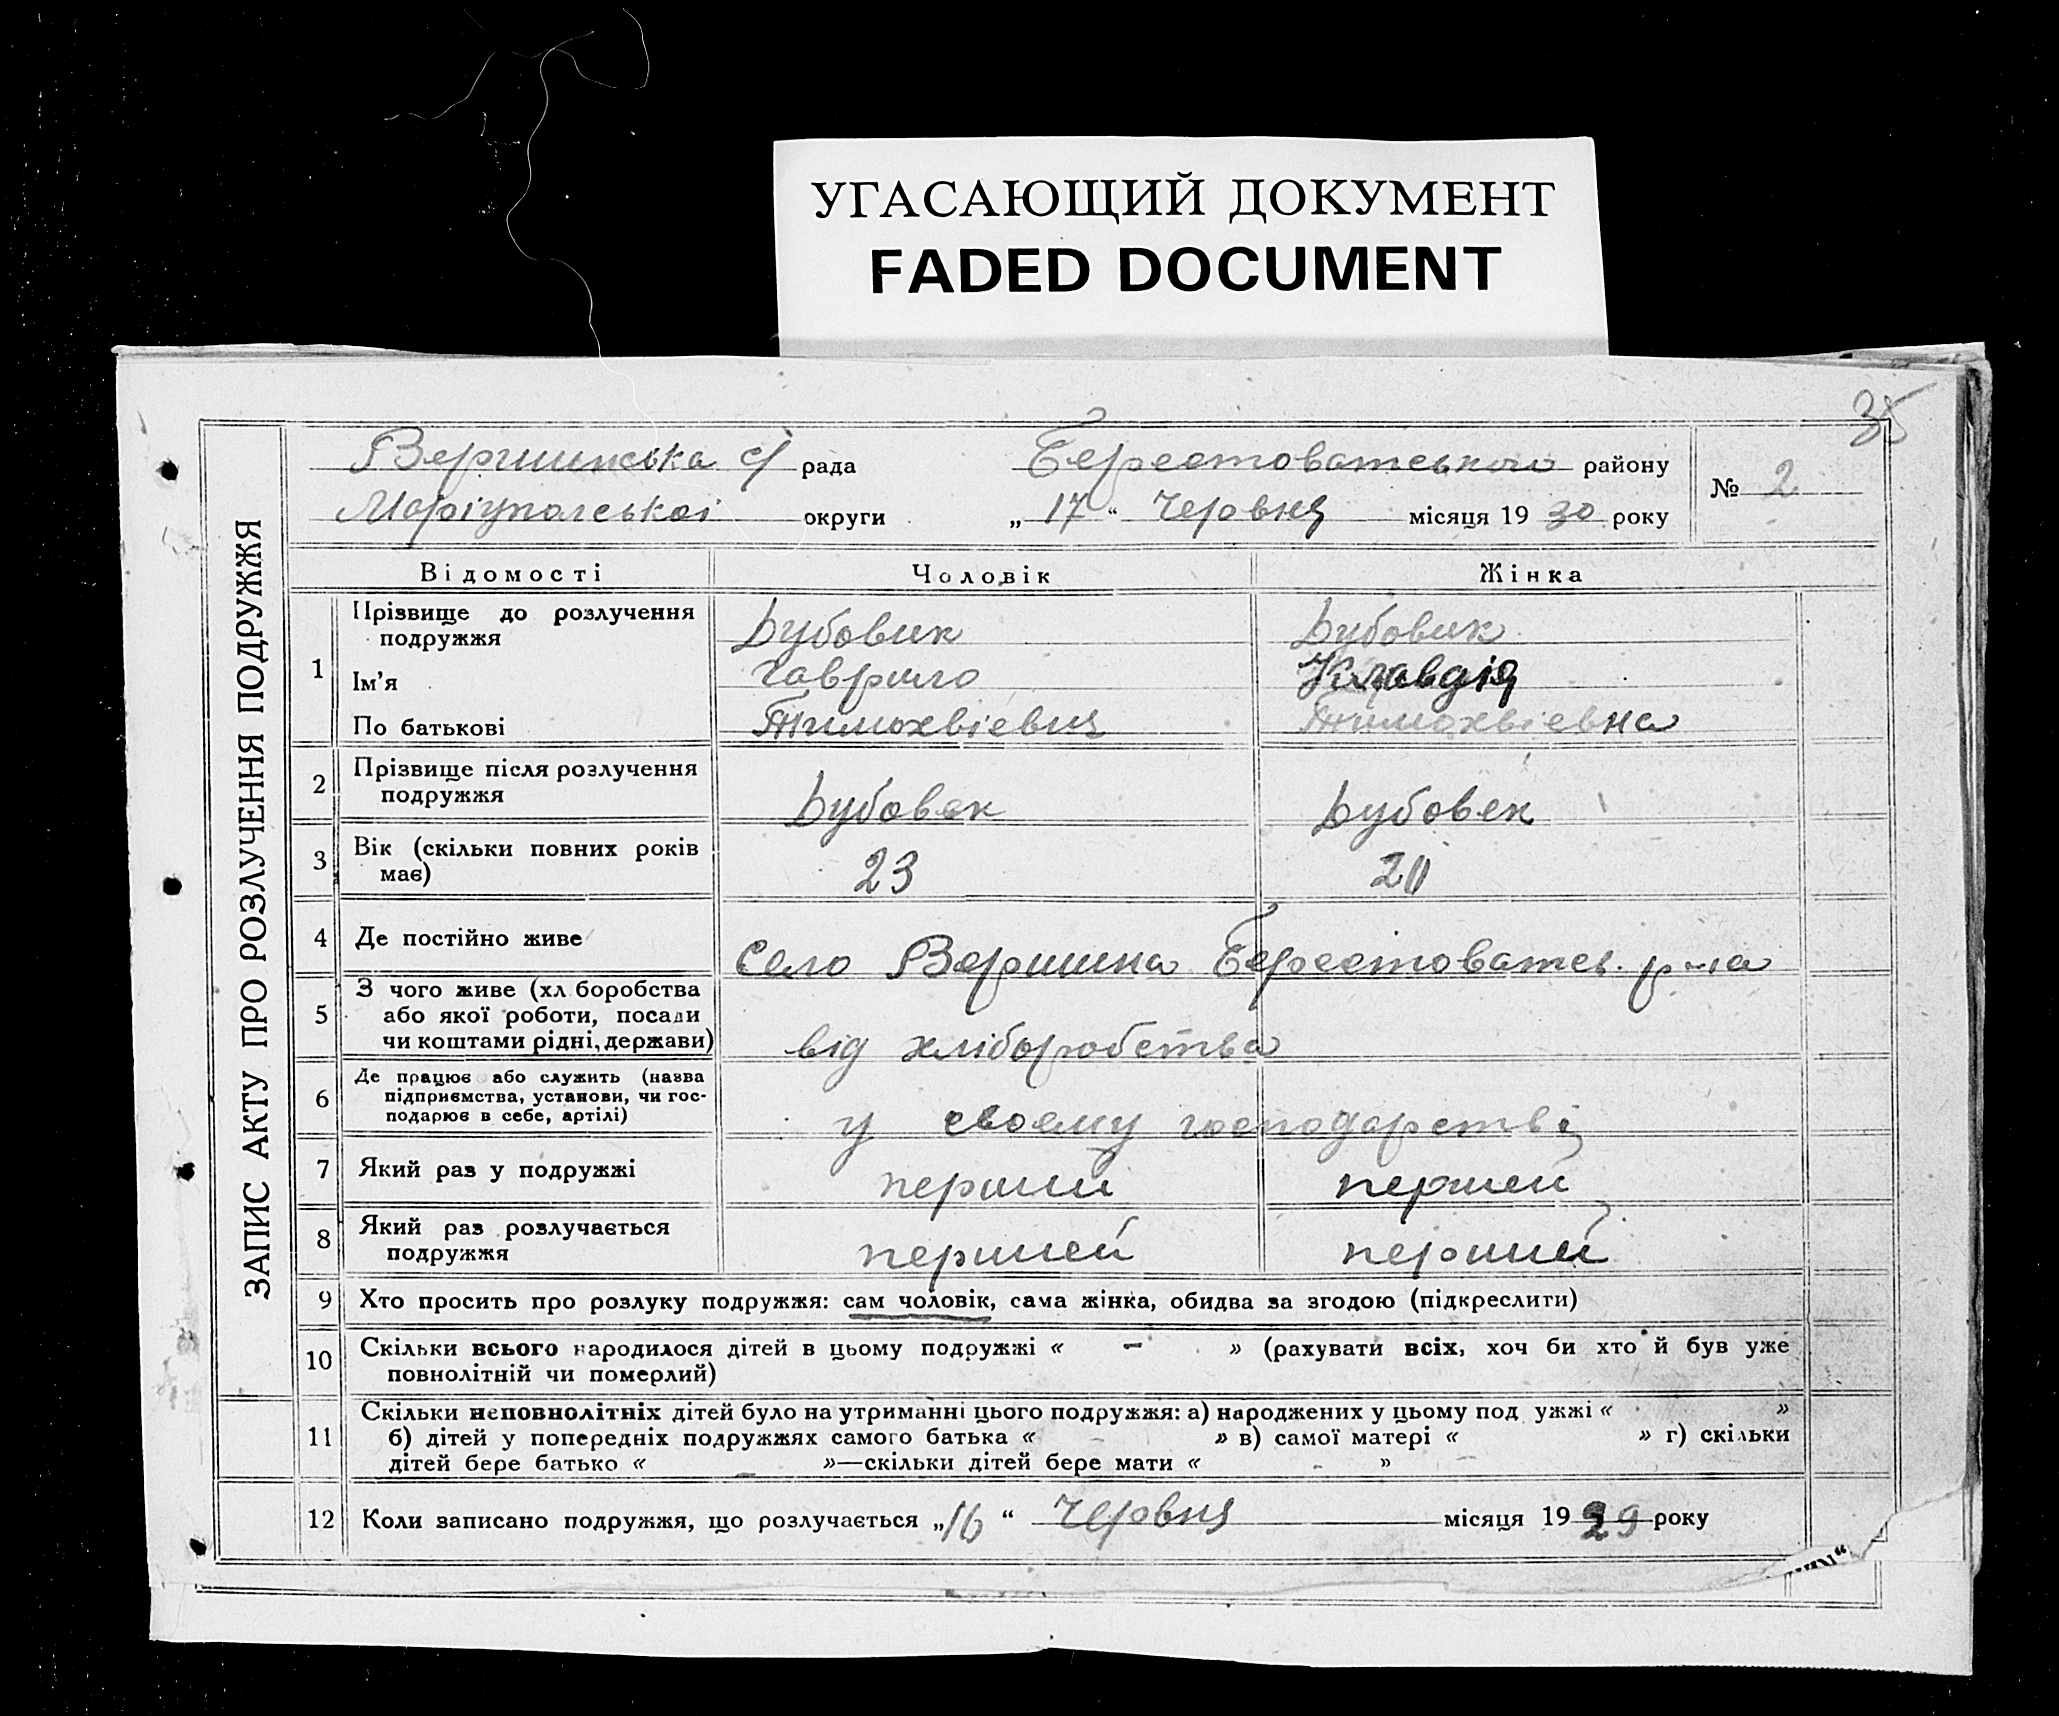 УГАСАЮЩИЙ ДОКУМЕНТ
FADED DOCUMENT
35
ЗАПИС АКТУ ПРО РОЗЛУЧЕННЯ ПОДРУЖЖЯ
Вершинська с/ рада Берестоватського району
№ 2
Маріупольської округи „ 17 “ Червня місяця 19 30 року
Відомості Чоловік Жінка
1 Прізвище до розлучення подружжя Дубовик Дубовик
Ім’я Гаврило Клавдія
По батькові Тимохвієвич Тимохвієвна
2 Прізвище після розлучення
подружжя Дубовек Дубовек
3 Вік (скільки повних років
має) 23 20
4 Де постійно живе Село Вершина Берестоватсь. р-на
5 З чого живе (хл боробства
або якої роботи, посади
чи коштами рідні, держави) від хліборобства
6 Де працює або служить (назва
підприємства, установи, чи гос-
подарює в себе, артілі) у своєму господарстві
7 Який раз у подружжі перший першей
8 Який раз розлучається
подружжя першей перший
9 Хто просить про розлуку подружжя: сам чоловік, сама жінка, обидва за згодою (підкреслити)
10 Скільки всього народилося дітей в цьому подружжі « – » (рахувати всіх, хоч би хто й був уже
повнолітній чи померлий)
11 Скільки неповнолітніх дітей було на утриманні цього подружжя: а) народжених у цьому под ужжі « »
б) дітей у попередніх подружжях самого батька « » в) самої матері « » г) скільки
дітей бере батько « – »—скільки дітей бере мати « - »
12 Коли записано подружжя, що розлучається „ 16 “ Червня місяця 19 29 року